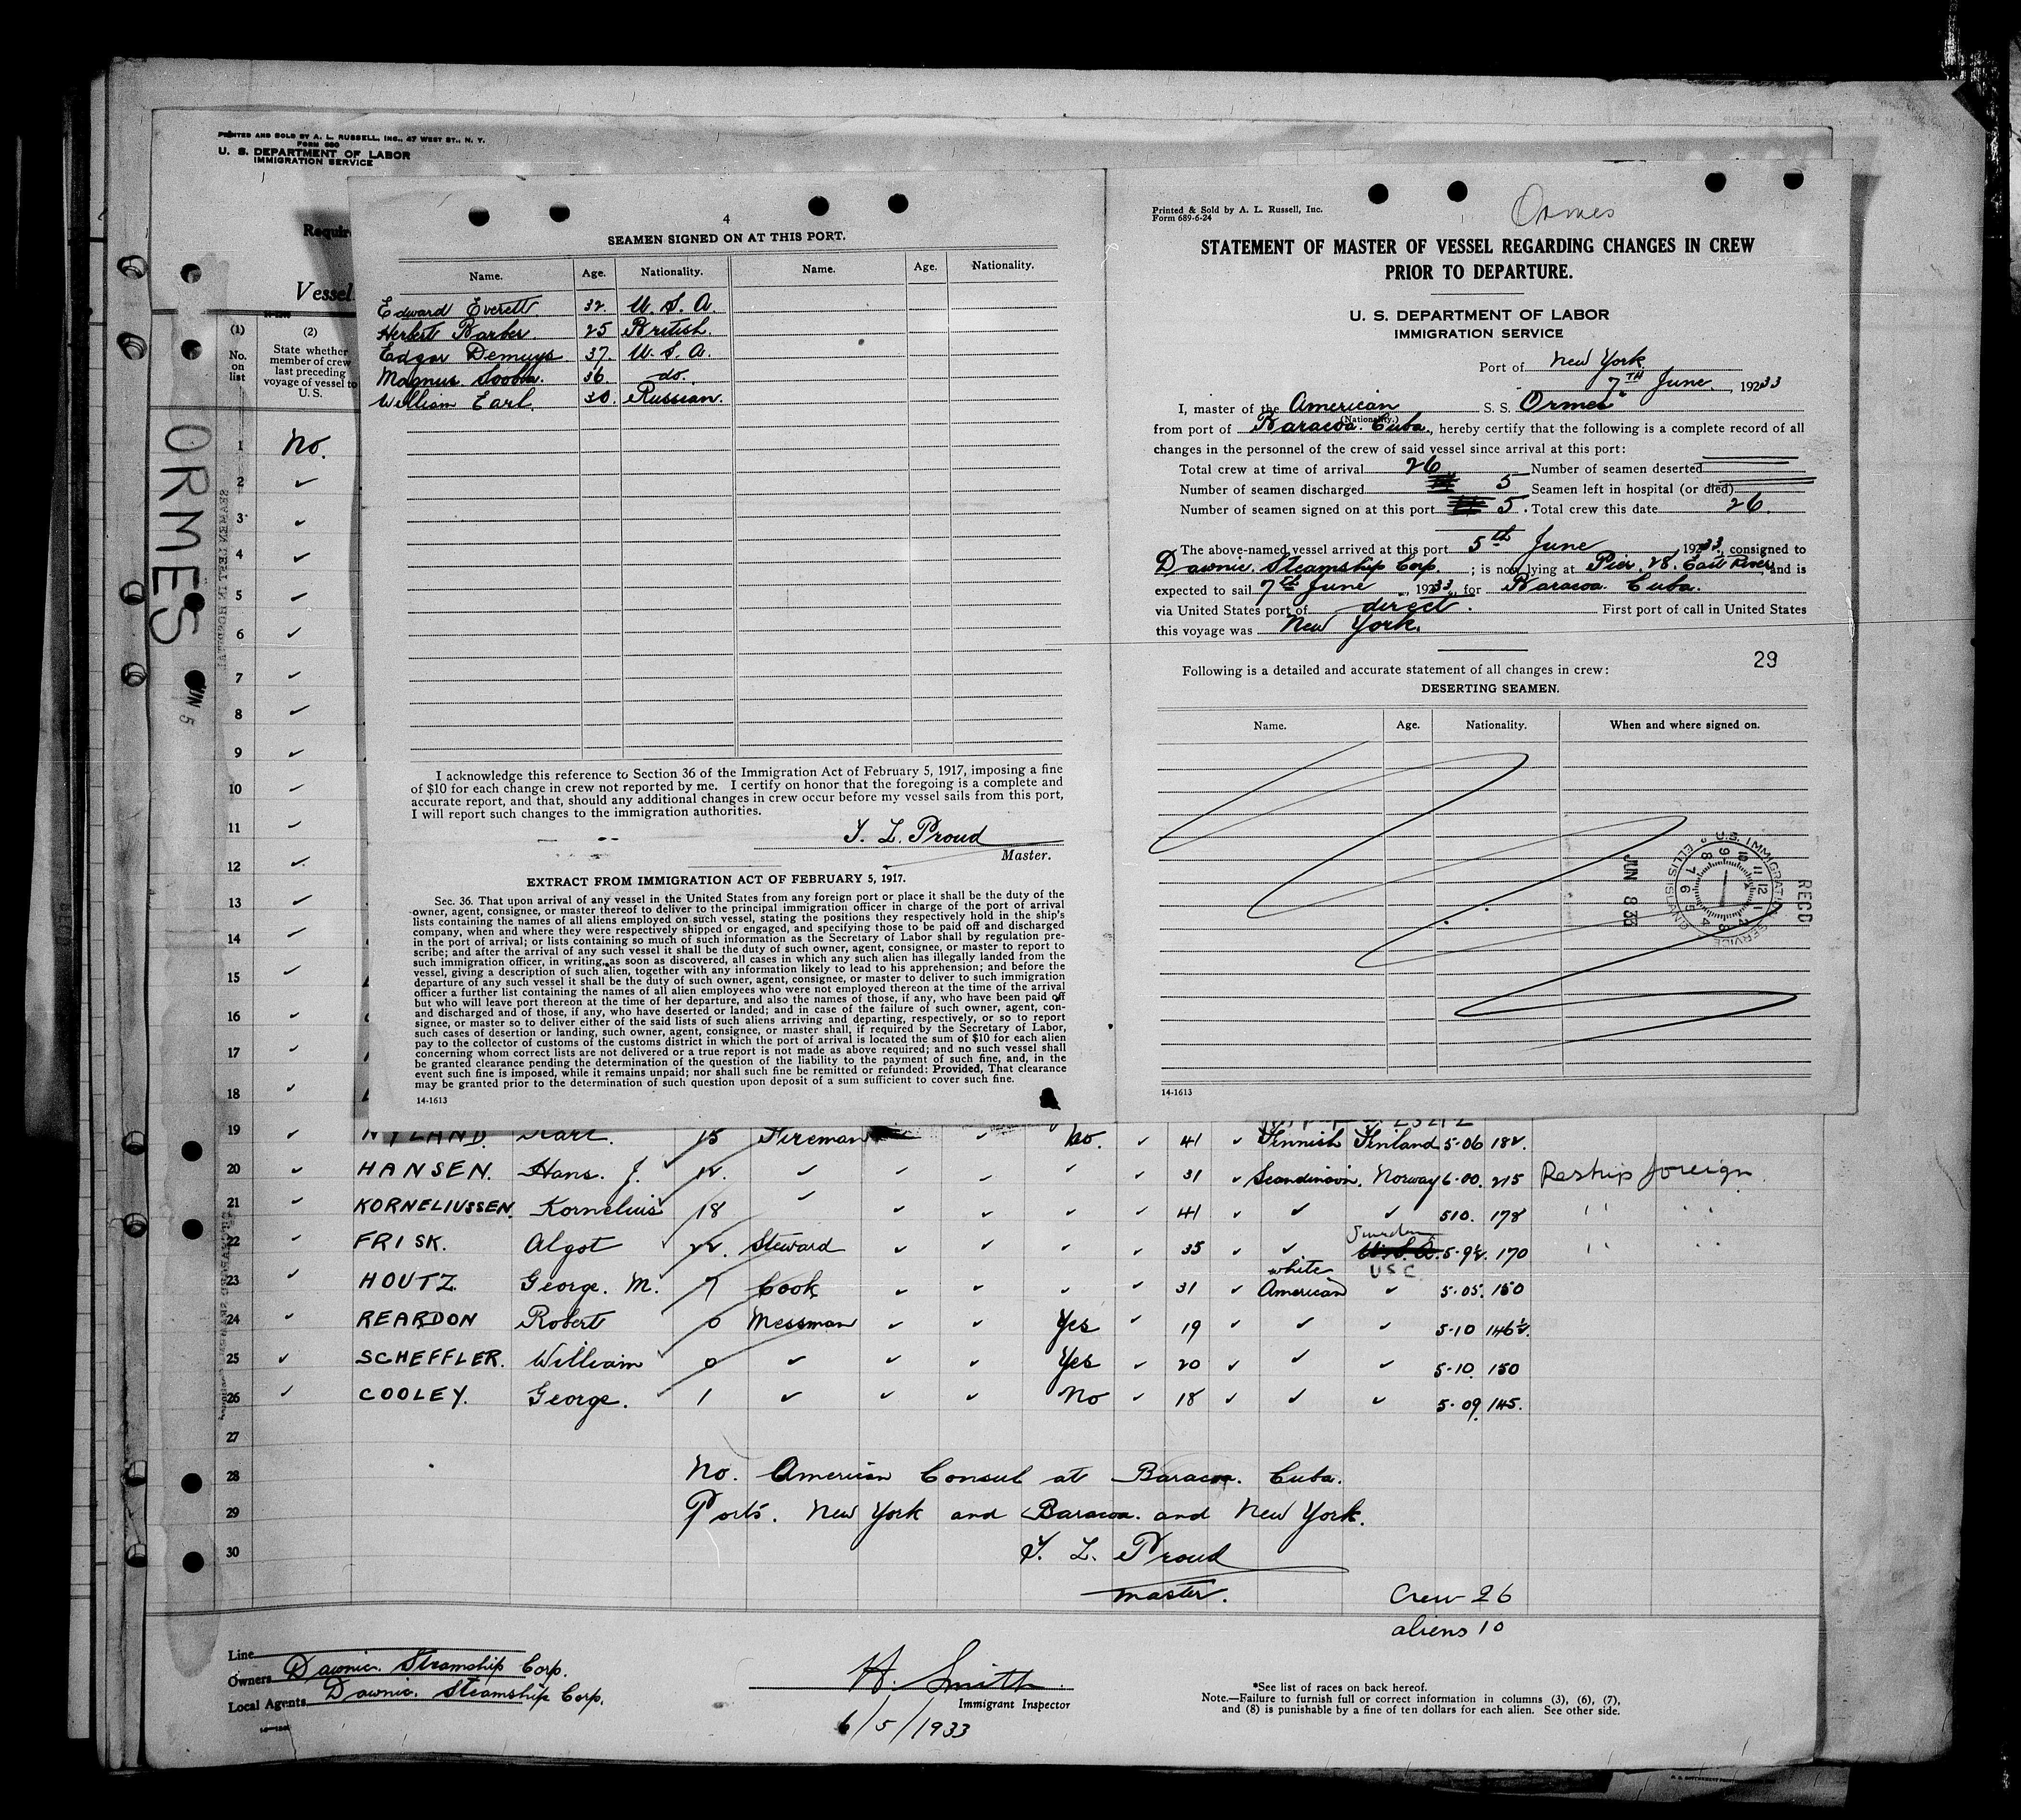 PRINTED AND SOLD BY A. L. RUSSELL, INC., 47 WEST ST., N. Y.
FORM 680
U. S. DEPARTMENT OF LABOR
IMMIGRATION SERVICE
Requir
Vessel
(1) (2)
No. on list
State whether member of crew last preceding voyage of vessel to U. S.
ORMES
JUN 5
1 No.
2 ✓
3 ✓
4 ✓
5 ✓
6 ✓
7 ✓
8 ✓
9 ✓
10 ✓
11 ✓
12 ✓
13 ✓
14 ✓
15 ✓
16 ✓
17 ✓
18 ✓
4
SEAMEN SIGNED ON AT THIS PORT.
Name. Age. Nationality. Name. Age. Nationality.
Edward Everett 32. U. S. A.
Herbert Barber. 25 British.
Edgar Demuys. 37. U. S. A.
Magnus 36. do.
William Earl. 30. Russian.
I acknowledge this reference to Section 36 of the Immigration Act of February 5, 1917, imposing a fine
of $10 for each change in crew not reported by me. I certify on honor that the foregoing is a complete and
accurate report, and that, should any additional changes in crew occur before my vessel sails from this port,
I will report such changes to the immigration authorities.
T. L. Proud
Master.
EXTRACT FROM IMMIGRATION ACT OF FEBRUARY 5, 1917.
Sec. 36. That upon arrival of any vessel in the United States from any foreign port or place it shall be the duty of the
owner, agent, consignee, or master thereof to deliver to the principal immigration officer in charge of the port of arrival
lists containing the names of all aliens employed on such vessel, stating the positions they respectively hold in the ship's
company, when and where they were respectively shipped or engaged, and specifying those to be paid off and discharged
in the port of arrival; or lists containing so much of such information as the Secretary of Labor shall by regulation pre-
scribe; and after the arrival of any such vessel it shall be the duty of such owner, agent, consignee, or master to report to
such immigration officer, in writing, as soon as discovered, all cases in which any such alien has illegally landed from the
vessel, giving a description of such alien, together with any information likely to lead to his apprehension; and before the
departure of any such vessel it shall be the duty of such owner, agent, consignee, or master to deliver to such immigration
officer a further list containing the names of all alien employees who were not employed thereon at the time of the arrival
but who will leave port thereon at the time of her departure, and also the names of those, if any, who have been paid off
and discharged and of those, if any, who have deserted or landed; and in case of the failure of such owner, agent, con-
signee, or master so to deliver either of the said lists of such aliens arriving and departing, respectively, or so to report
such cases of desertion or landing, such owner, agent, consignee, or master shall, if required by the Secretary of Labor,
pay to the collector of customs of the customs district in which the port of arrival is located the sum of $10 for each alien
concerning whom correct lists are not delivered or a true report is not made as above required; and no such vessel shall
be granted clearance pending the determination of the question of the liability to the payment of such fine, and, in the
event such fine is imposed, while it remains unpaid; nor shall such fine be remitted or refunded: Provided, That clearance
may be granted prior to the determination of such question upon deposit of a sum sufficient to cover such fine.
14-1613
Printed & Sold by A. L. Russell, Inc.
Form 689-6-24
Ormes
STATEMENT OF MASTER OF VESSEL REGARDING CHANGES IN CREW
PRIOR TO DEPARTURE.
U. S. DEPARTMENT OF LABOR
IMMIGRATION SERVICE
Port of New York.
7TH June, 19233
I, master of the American S. S. "Ormes"
(Nationality.)
from port of Baracoa. Cuba, hereby certify that the following is a complete record of all
changes in the personnel of the crew of said vessel since arrival at this port:
Total crew at time of arrival 26 Number of seamen deserted
Number of seamen discharged 5 Seamen left in hospital (or died)
Number of seamen signed on at this port 5. Total crew this date 26.
The above-named vessel arrived at this port 5th June, 19233, consigned to
Dawnic. Steamship Corp.; is now lying at Pier. 28. East River, and is
expected to sail 7th June, 19233, for Baracoa. Cuba.
via United States port of direct. First port of call in United States
this voyage was New York.
29
Following is a detailed and accurate statement of all changes in crew:
DESERTING SEAMEN.
Name. Age. Nationality. When and where signed on.
U.S. IMMIGRATION SERVICE ELLIS ISLAND
JUN 8 33
RECD
14-1613
19 ✓ NYLAND. Karl. 15 Fireman ✓ No. ✓ 41 ✓ Finnish Finland 5-06 182.
20 ✓ HANSEN. Hans. J. 12. ✓ ✓ ✓ ✓ ✓ 31 ✓ Scandinavian. Norway 6-00. 215 Reship foreign
21 ✓ KORNELIUSSEN. Kornelius 18 ✓ ✓ ✓ ✓ ✓ 41 ✓ ✓ ✓ 510. 178 " "
22 ✓ FRISK. Algot 22. Steward ✓ ✓ ✓ ✓ 35 ✓ ✓ Sweden U.S.A. 5-9½. 170 " "
23 ✓ HOUTZ. George. M. 7 Cook ✓ ✓ ✓ ✓ 31 ✓ white American USC ✓ 5-05. 150
24 ✓ REARDON Robert 0 Messman ✓ ✓ Yes ✓ 19 ✓ ✓ 5-10 146½.
25 ✓ SCHEFFLER. William 0 ✓ ✓ ✓ Yes ✓ 20 ✓ ✓ ✓ 5-10. 150
26 ✓ COOLEY. George. 1 ✓ ✓ ✓ No ✓ 18 ✓ ✓ ✓ 5-09. 145.
27
28 No. American Consul at Baracoa. Cuba.
29 Ports. New York and Baracoa. and New York.
30 T. L. Proud
master.
Crew 26
aliens 10
Line
Owners Dawnic. Steamship Corp.
Local Agents Dawnic. Steamship Corp.
H. Smith
Immigrant Inspector
6/5/1933
*See list of races on back hereof.
Note.—Failure to furnish full or correct information in columns (3), (6), (7),
and (8) is punishable by a fine of ten dollars for each alien. See other side.